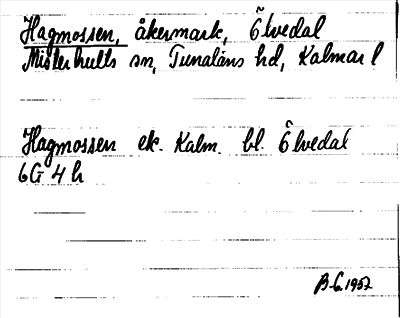 Hagmossen, åkermark, Ölvedal
Misterhults sn, Tunaläns hd, Kalmar l
Hagmossen ek. Kalm. bl. Ölvedal
6G 4h
B.G. 1952